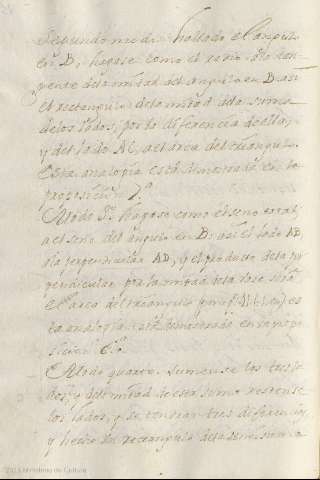 Segundo modo: hallado el angulo
en B, hagase como el radio a la tan-
gente de la mitad del angulo en B, asi
el rectangulo de la mitad de la suma
de los lados, por la diferencia de ellas,
y del lado AC, al area del triangulo.
Esta analogia está demostrada en la
proposicion 7ª
Modo 3º. hagase como el seno total,
al seno del angulo en B; asi el lado AB
ala perpendicular AD, y el producto de la per
pendicular por la mitad de la base será
el area del triangulo es
ta analogia está demostrada en la propo
sicion 6ª.
Modo quarto. Sumense los tres la
dos, y de la mitad de esta suma restense
los lados, y se tendran tres diferencias,
y hecho un rectangulo de la semisuma
2023 Ministerio de Cultura